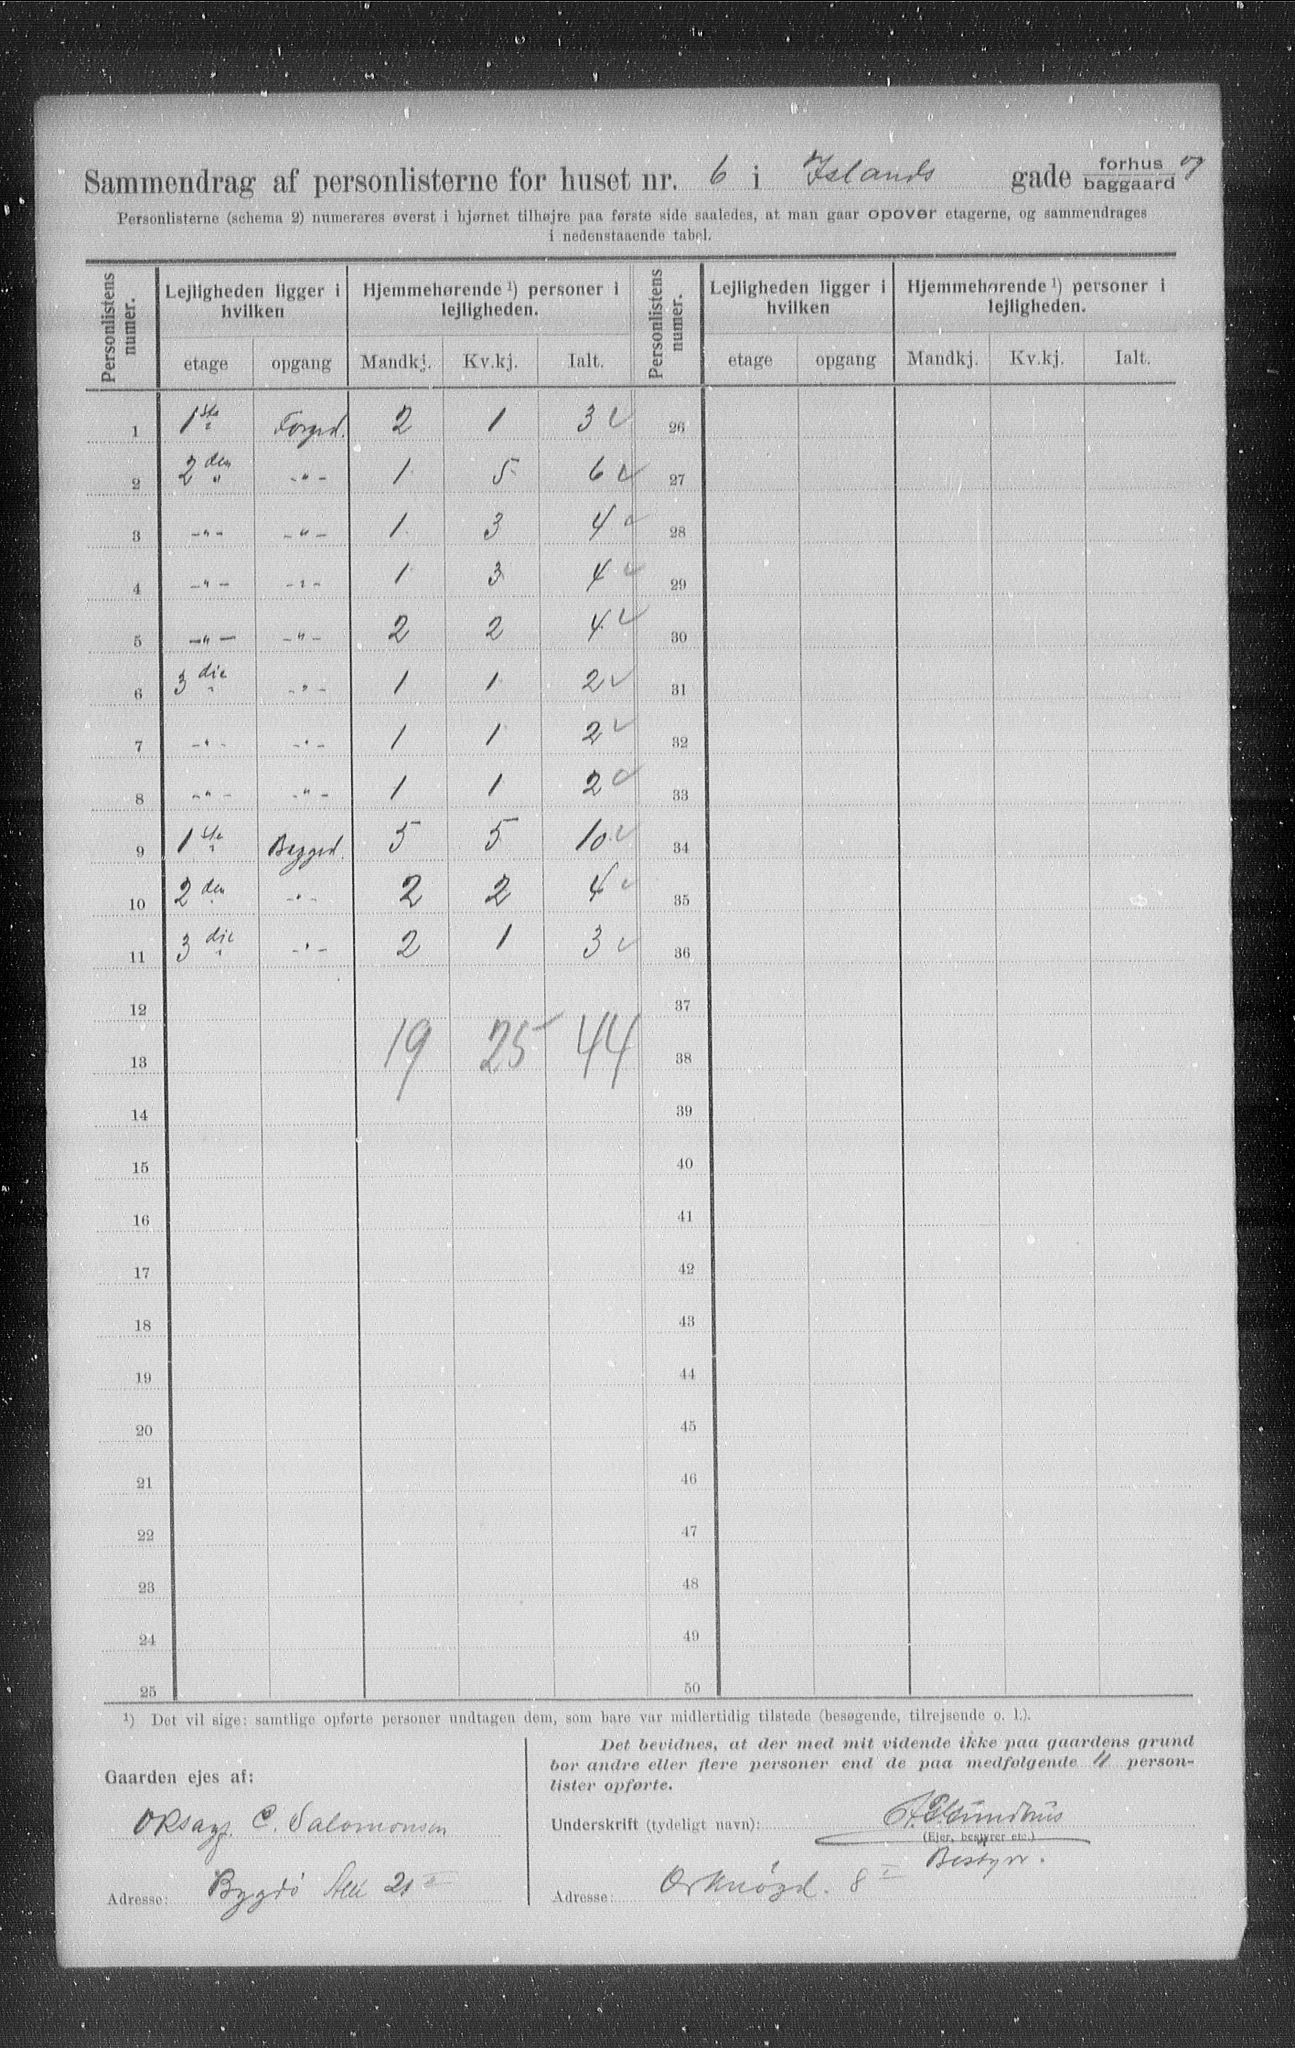 Sammendrag af personlisterne for huset nr. 6 i Islands gade forhus og baggaard
Personlisterne (schema 2) numereres øverst i hjørnet tilhøjre paa første side saaledes, at man gaar opover etagerne, og sammendrages
i nedenstaaende tabel.
Personlistens numer. Lejligheden ligger i hvilken Hjemmehørende ¹) personer i lejligheden. Personlistens numer. Lejligheden ligger i hvilken Hjemmehørende ¹) personer i lejligheden.
etage opgang Mandkj. Kv.kj. Ialt. etage opgang Mandkj. Kv.kj. Ialt.
1 1ste Forgrd. 2 1 3 ✓ 26
2 2den -"- 1 5 6 ✓ 27
3 -"- -"- 1 3 4 ✓ 28
4 -"- -"- 1 3 4 ✓ 29
5 -"- -"- 2 2 4 ✓ 30
6 3die -"- 1 1 2 ✓ 31
7 -"- -"- 1 1 2 ✓ 32
8 -"- -"- 1 1 2 ✓ 33
9 1ste Baggrd. 5 5 10 ✓ 34
10 2den -"- 2 2 4 ✓ 35
11 3die -"- 2 1 3 ✓ 36
12 37
19 25 44
13 38
14 39
15 40
16 41
17 42
18 43
19 44
20 45
21 46
22 47
23 48
24 49
25 50
¹) Det vil sige: samtlige opførte personer undtagen dem, som bare var midlertidig tilstede (besøgende, tilrejsende o. l.).
Gaarden ejes af:
C. Salomonsen
Adresse: Bygdø Alle 21 II
Det bevidnes, at der med mit vidende ikke paa gaardens grund
bor andre eller flere personer end de paa medfølgende 11 person-
lister opførte.
Underskrift (tydeligt navn):
(Ejer, bestyrer etc.)
Bestyrer.
Adresse: Orknøgd. 8 I